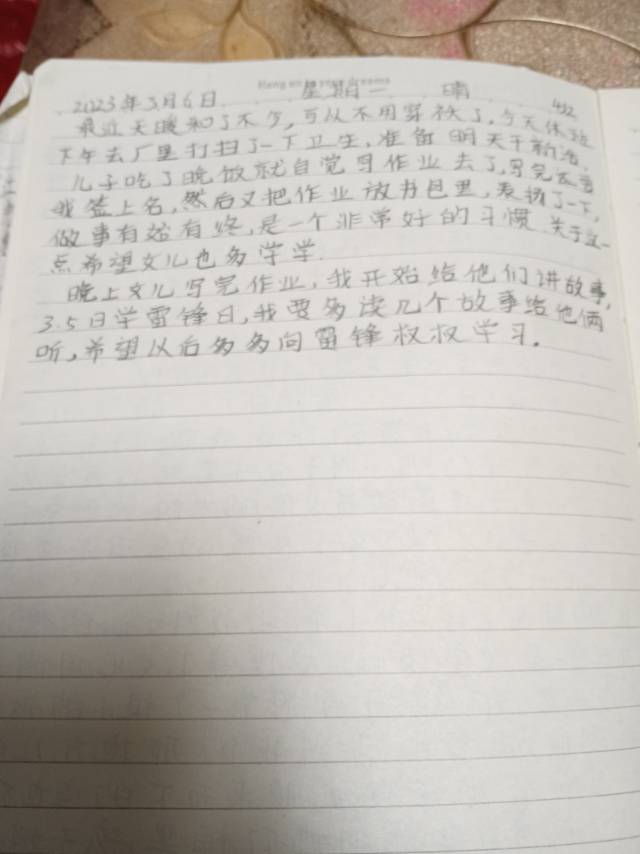 Hang on to your dreams
2023年3月6日 星期一 晴 432
最近天暖和了不少,可以不用穿袄了,今天休班
下午去厂里打扫了一下卫生,准备明天干新活.
儿子吃了晚饭就自觉写作业去了,写完后当
我签上名,然后又把作业放书包里,表扬了一下,
做事有始有终,是一个非常好的习惯 关于这一
点希望女儿也多学学.
晚上女儿写完作业,我开始给他们讲故事,
3.5日学雷锋日,我要多读几个故事给他俩
听,希望以后多多向雷锋叔叔学习.